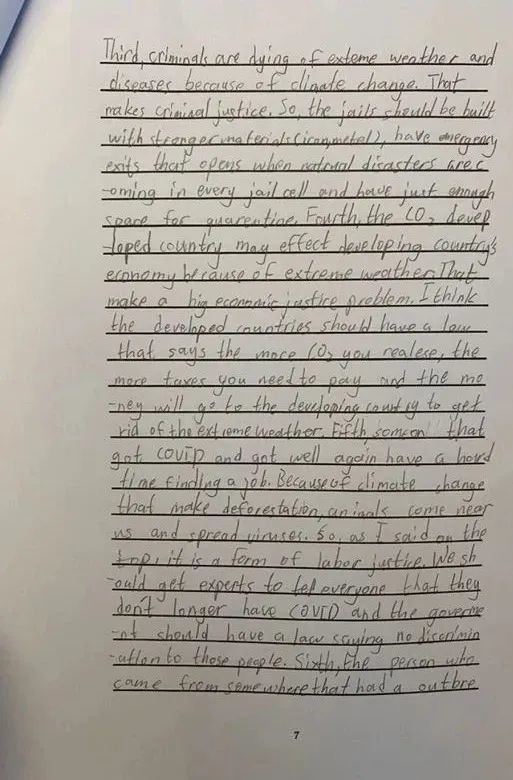 Third, criminals are dying of exteme weather and
diseases because of climate change. That
makes criminal justice. So, the jails should be built
with stronger materials(iron,metal), have emergency
exits that opens when natural disasters are c
-oming in every jail cell and have just enough
space for quarentine. Fourth, the CO2 devep
-loped country may effect developing country's
economy because of extreme weather. That
make a big economic justice problem. I think
the developed countries should have a law
that says the more CO2 you realese, the
more taxes you need to pay and the mo
-ney will go to the developing country to get
rid of the extreme weather. Fifth someon that
got COVID and got well again have a hard
time finding a job. Because of climate change
that make deforestation, animals come near
us and spread viruses. So, as I said on the
top, it is a form of labor justice. We sh
-ould get experts to tell everyone that they
don't longer have COVID and the governe
-nt should have a law saying no discrimin
-ation to those people. Sixth, the person who
came from somewhere that had a outbre
7